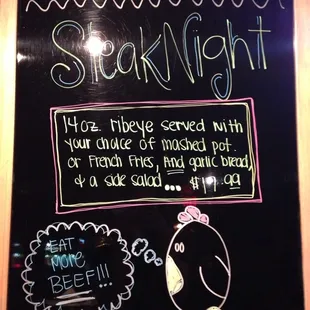 Steak Night
14oz. ribeye served with
your choice of mashed pot.
or French Fries, And garlic bread,
& a side salad ... $19.99
EAT
More
BEEF!!!